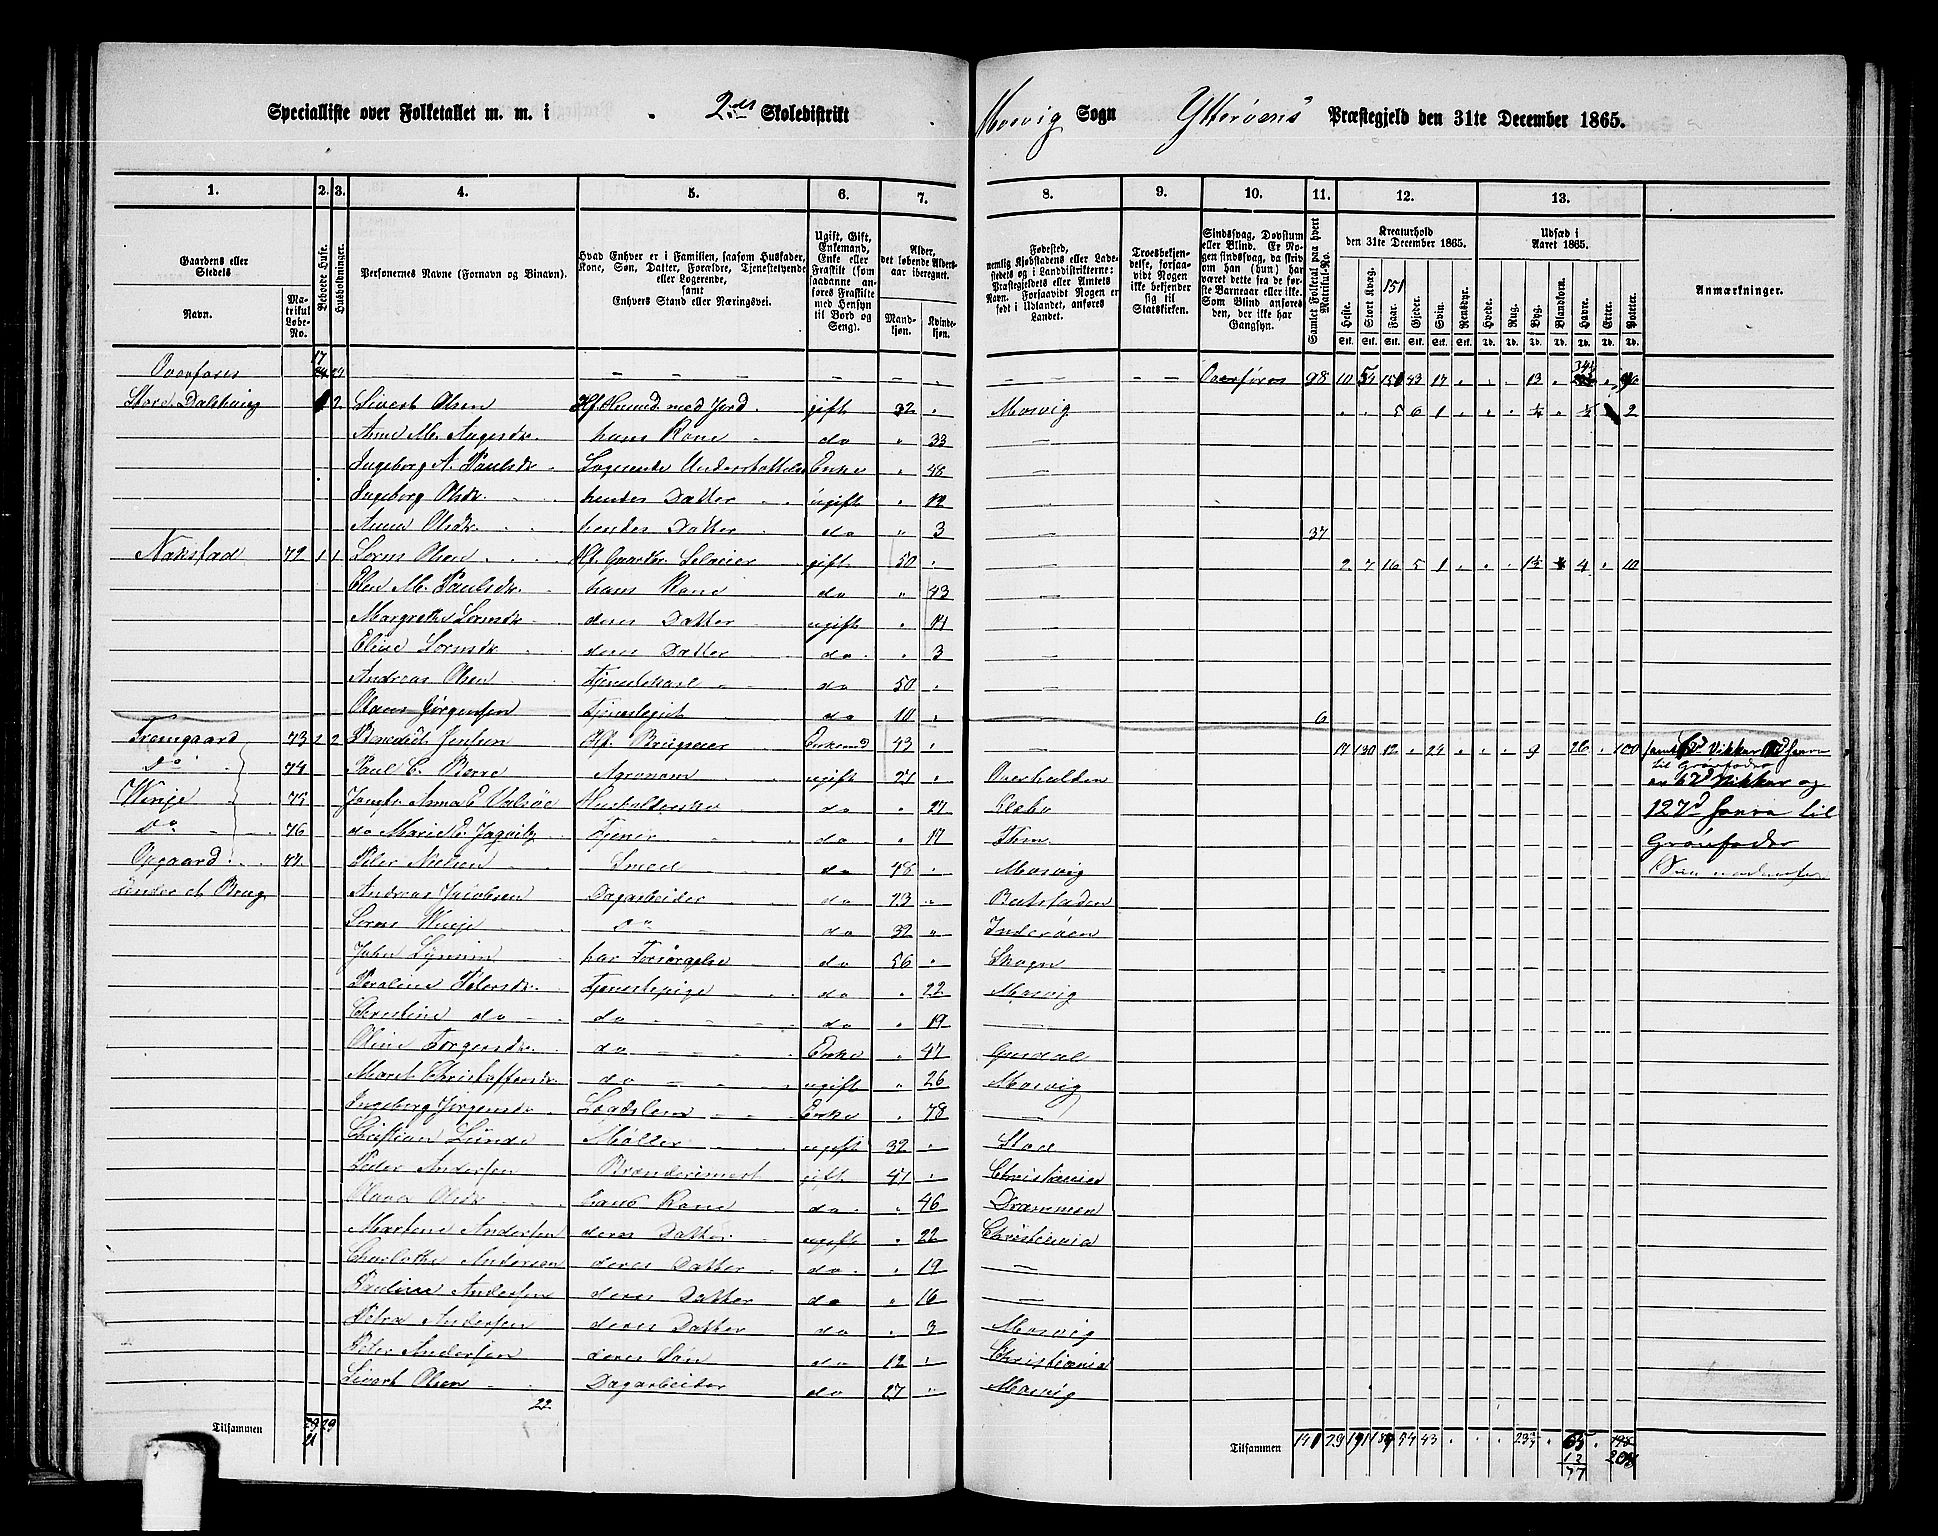 Specialliste over Folketallet m. m. i 2det Skoledistrikt Mosvig Sogn Ytterøens Præstegjeld den 31te December 1865.
1. 2. 3. 4. 5. 6. 7. 8. 9. 10. 11. 12. 13.
Gaardens eller Stedets Navn. Matrikul Løbe-No. Beboede Huse. Husholdninger. Personernes Navne (Fornavn og Binavn).
Hvad Enhver er i Familien, saasom Husfader, Kone, Søn, Datter, Forældre, Tjenestetyende eller Logerende, samt Enhvers Stand eller Næringsvei.
Ugift, Gift, Enkemand, Enke eller Fraskilt (som saadanne anføres Fraskilte med Hensyn til Bord og Seng).
Alder, det løbende Aldersaar iberegnet. Mandkjøn. Kvindekjøn.
Fødested, nemlig Kjøbstadens eller Ladestedets og i Landdistrikterne: Præstegjeldets eller Amtets Navn. Forsaavidt Nogen er født i Udlandet, anføres Landet.
Troesbekjendelse, forsaavidt Nogen ikke bekjender sig til Statskirken.
Sindssvag, Døvstum eller Blind. Er Nogen sindssvag, da skrives om han (hun) har været dette fra de første Barneaar eller ikke. Som Blind anføres den, der ikke har Gangsyn.
Samlet Folketal paa hvert Matrikul-No.
Kreaturhold den 31te December 1865. Heste. Stort Kvæg. Faar. Gjeder. Svin. Rensdyr.
Udsæd i Aaret 1865. Hvede. Rug. Byg. Blandkorn. Havre. Erter. Poteter.
Anmærkninger.
Overføres Overføres 98 10 54 151 43 17 13
Store Dalsvig 2 Sivert Olsen Hf. Husmd med Jord gift 32 Mosvig 5 6 1 ¼ ½ 2
Anne M. Aagesdr. hans Kone do 33
Ingeborg A. Paulsdr Logerende Understøttelse Enke 48
Ingeborg Olsdr. hendes Datter ugift 12
Anna Olsdr. hendes Datter do 3 37
Nakstad 72 1 1 Lorns Olsen Hf. Gaardbr. Selveier gift 50 2 7 16 5 1 1½ 4 10
Elen M. Paulsdr. hans Kone do 43
Margrethe Lornsdr deres Datter ugift 14
Eline Lornsdr deres Datter do 3
Andreas Olsen Tjenestekarl do 50
Olaus Jørgensen Tjenestegut do 10 6
Framgaard 73 1 2 Benedict Jentsen Hf. Brugseier Enkemd 43 17 130 12 24 9 26 100
Do 74 Paul C. Borre Agronom ugift 27 Overhalden til Grønfoder
Winje 75 Jomfr. Anna E Valsøe Husholderske do 27 Klæbo 12 Td havre til
Do 76 do Marie E. Jagvitz Tjener do 17 Thm. Grønfoder
Opgaard 77 Peter Nielsen Smed do 48 Mosvig
under et Brug Andreas Jacobsen Dagarbeider do 23 Beitstaden
Lorns Winje Do do 32 Inderøen
John Lynum har Forsørgelse do 56 Skogn
Peroline Petersdr. Tjenestepige do 22 Mosvig
Christine do do do 19
Oline Torgersdr. do Enke 47
Maret Christoffersdr. do ugift 26 Mosvig
Ingeborg Jørgensdr. Enke 78
Christian Lunde Møller ugift 32 Stod
Peder Andersen Brænderimest gift 41 Christiania
Olava Olsdr. hans Kone do 46 Drammen
Martine Andersen deres Datter ugift 22 Christiania
Charlotte Andersen deres Datter do 19
Pauline Andersen deres Datter do 16
Petra Andersen deres Datter do 3 Mosvig
Peter Andersen deres Søn do 12 Christiania
Sivert Olsen Dagarbeider do 27 Mosvig
22
Tilsammen 29 29 Tilsammen 141 29 191 184 54 43 65
21 12
77 208